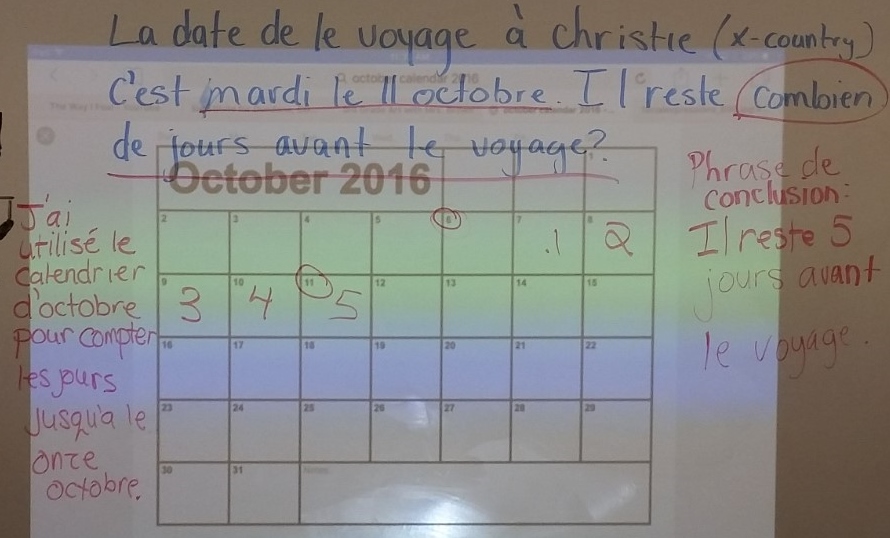 La date de le voyage à christie (x-country)
c'est mardi le 11 octobre. Il reste combien
de jours avant le voyage?
October 2016
J'ai
utilisé le
calendrier
d'octobre
pour compter
les jours
Jusqu'a le
onze
octobre.
1
2 3 4 5 6 7 8
.1 2
9 10 11 12 13 14 15
3 4 5
16 17 18 19 20 21 22
23 24 25 26 27 28 29
30 31
Phrase de
conclusion:
Il reste 5
jours avant
le voyage.